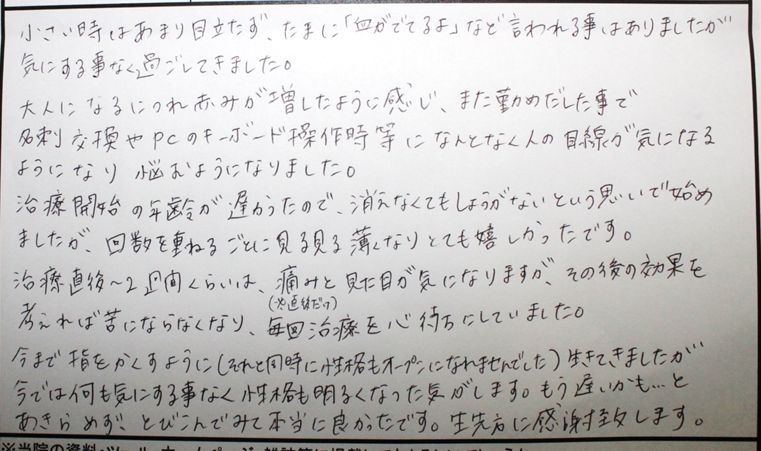 小さい時はあまり目立たず、たまに「血がでてるよ」など言われる事はありましたが
気にする事なく過ごしてきました。
大人になるにつれ赤みが増したように感じ、また勤めだした事で
名刺交換やPCのキーボード操作時等になんとなく人の目線が気になる
ようになり悩むようになりました。
治療開始の年齢が遅かったので、消えなくてもしょうがないという思いで始め
ましたが、回数を重ねるごとに見る見る薄くなりとても嬉しかったです。
治療直後～2週間くらいは、痛みと見た目が気になりますが、その後の効果を
(※直後だけ)
考えれば苦にならなくなり、毎回治療を心待ちにしていました。
今まで指をかくすように(それと同時に性格もオープンになれませんでした)生きてきましたが
今では何も気にする事なく性格も明るくなった気がします。もう遅いかも…と
あきらめず、とびこんでみて本当に良かったです。生先方に感謝致します。